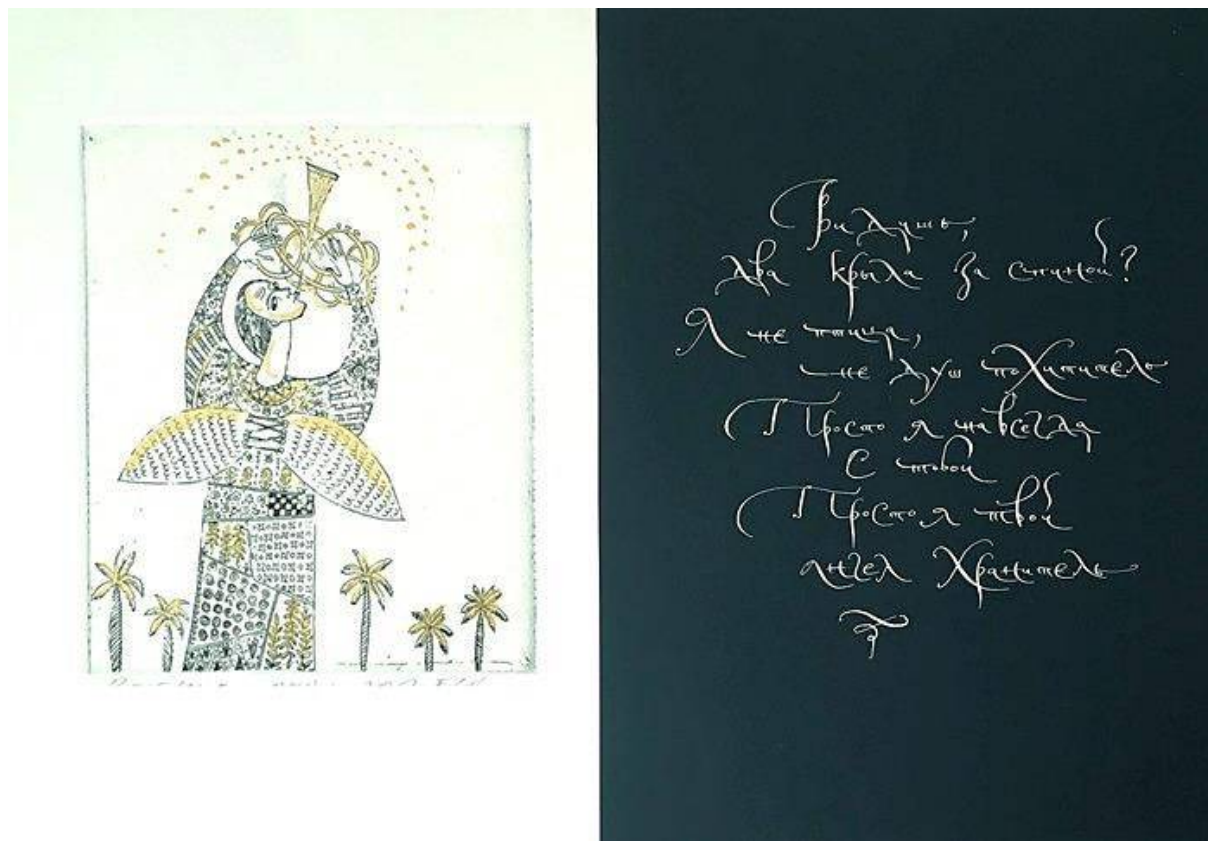 Видишь,
два крыла за спиной?
Я не птица,
не душ похититель
Просто я навсегда
с тобой
Просто я твой
ангел Хранитель